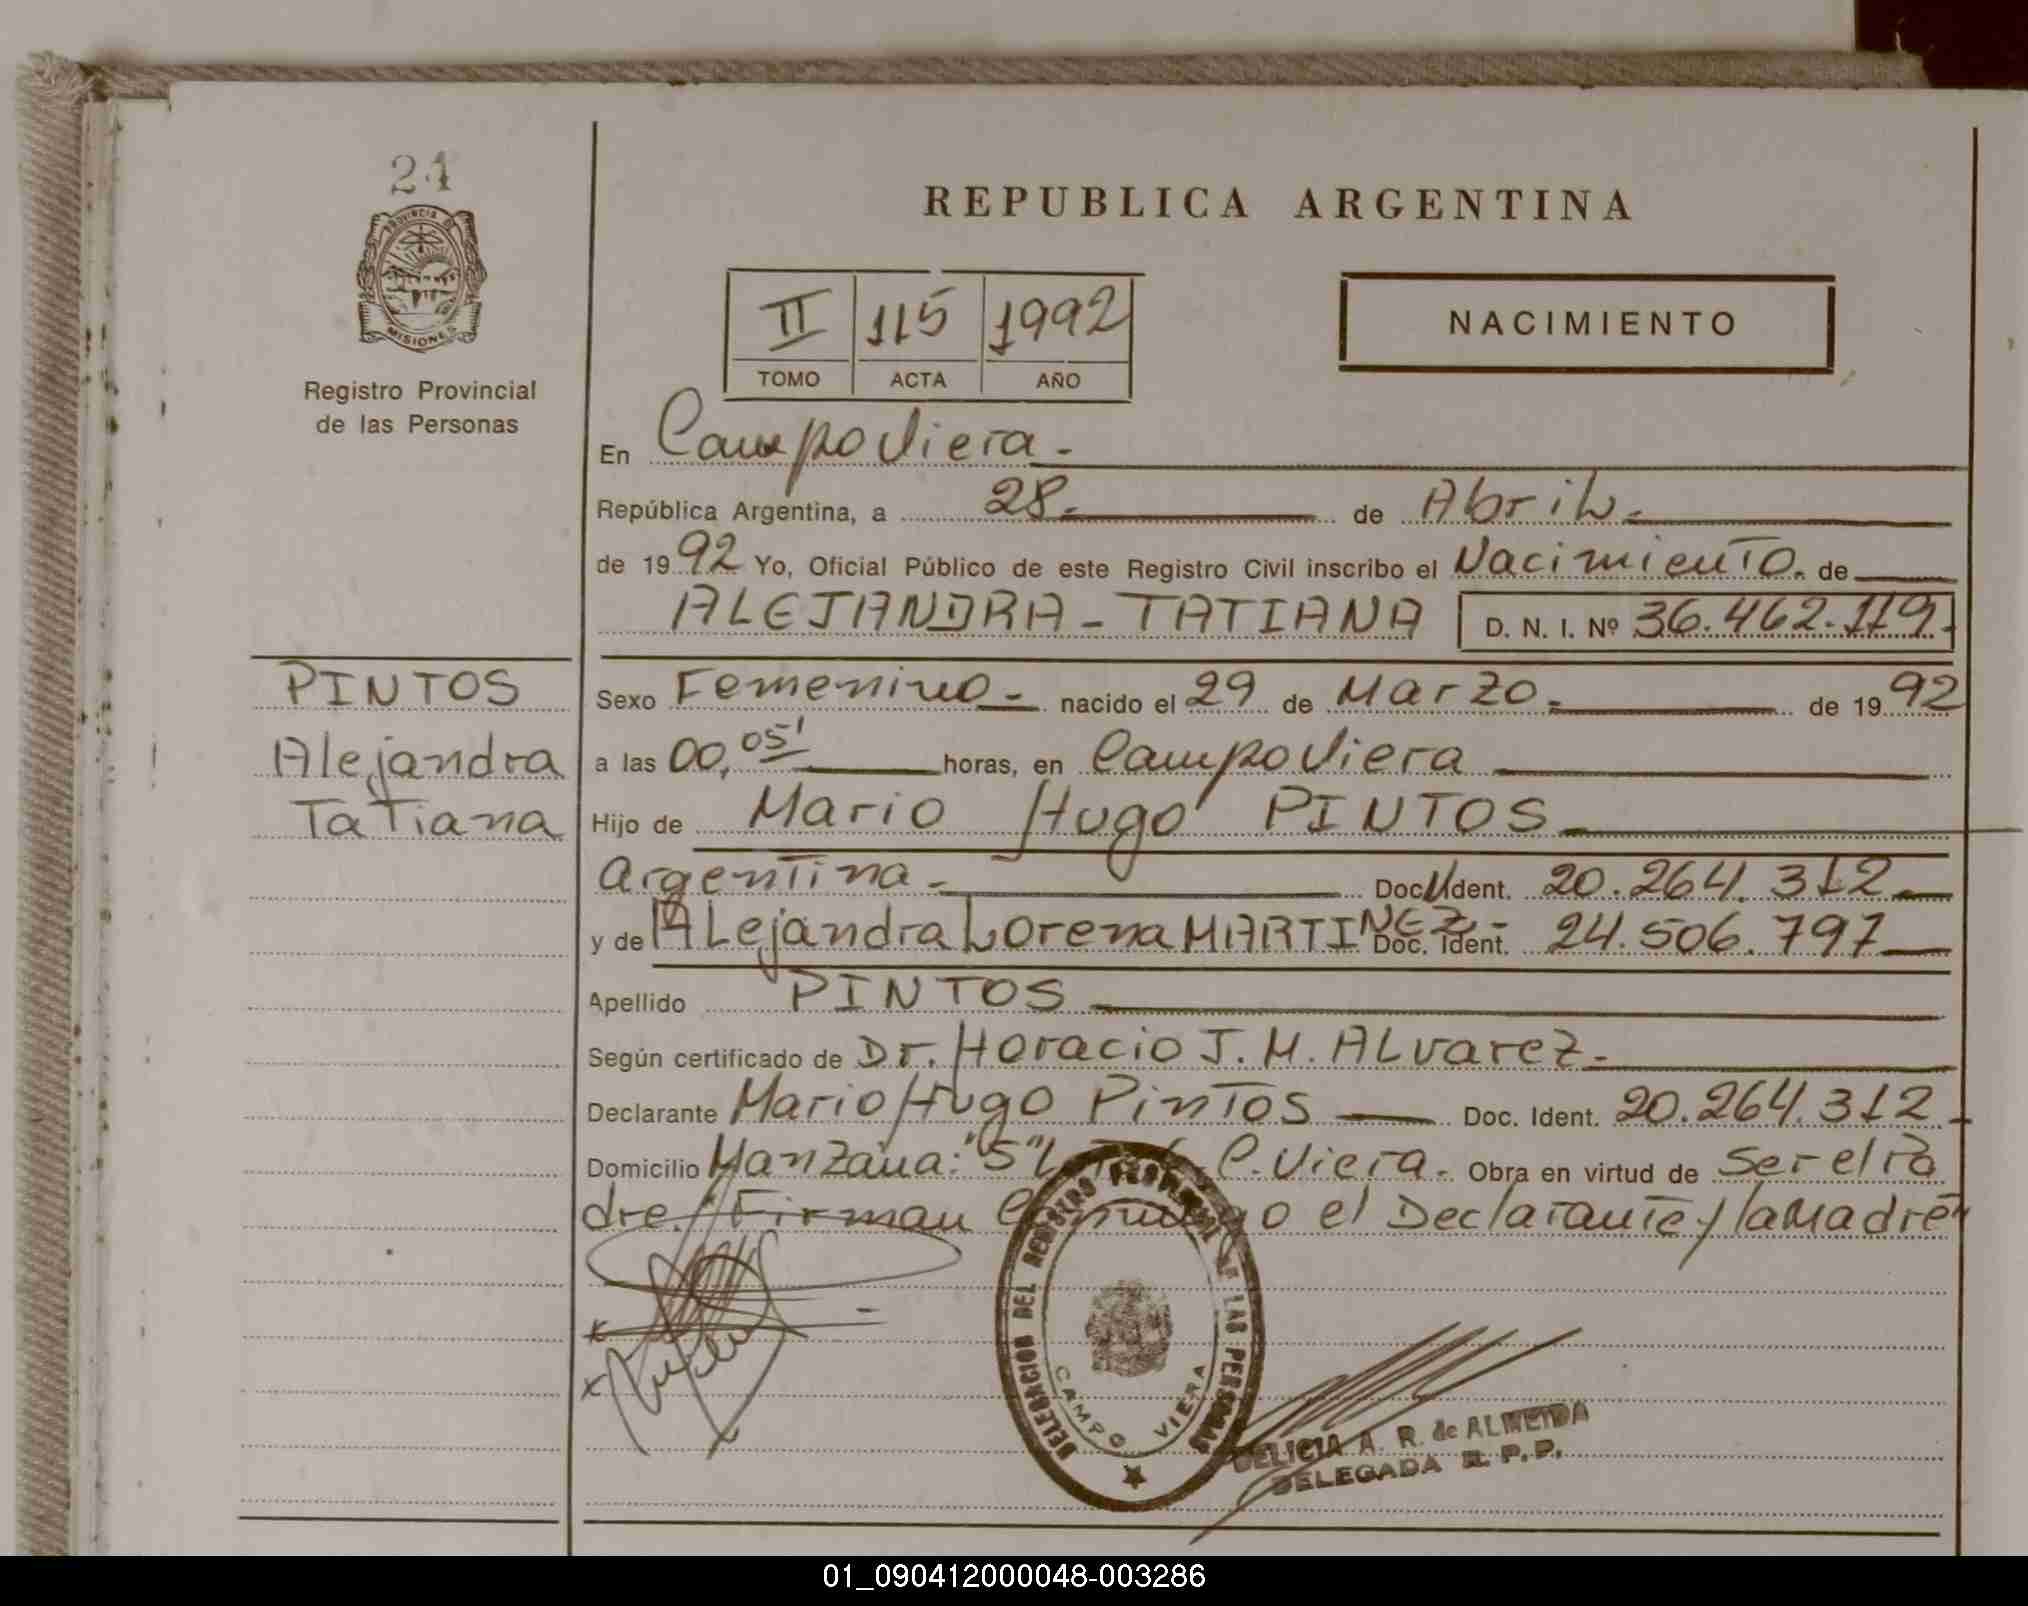 24
PROVINCIA DE
MISIONES
Registro Provincial
de las Personas
REPUBLICA ARGENTINA
II 115 1992
TOMO ACTA AÑO
NACIMIENTO
En Campo Viera.-
República Argentina, a 28.- de Abril.-
de 1992 Yo, Oficial Público de este Registro Civil inscribo el Nacimiento. de
ALEJANDRA - TATIANA D. N. I. Nº 36.462.119.-
PINTOS
Alejandra
Tatiana
Sexo Femenino.- nacido el 29 de Marzo.- de 1992
a las 00,05' horas, en Campo Viera
Hijo de Mario Hugo PINTOS
Argentina.- Doc. Ident. 20.264.312
y de Alejandra Lorena MARTINEZ.- Doc. Ident. 24.506.797
Apellido PINTOS
Según certificado de Dr. Horacio J. M. ALvarez.-
Declarante Mario Hugo Pintos Doc. Ident. 20.264.312
Domicilio Manzana: "5" C. Viera. Obra en virtud de Ser el Pa
dre. Firman Conmigo el Declarante y la Madre
DELEGACION DEL REGISTRO PROVINCIAL DE LAS PERSONAS
CAMPO VIERA
DELICIA A. R. de ALMEIDA
DELEGADA R. P. P.
01_090412000048-003286